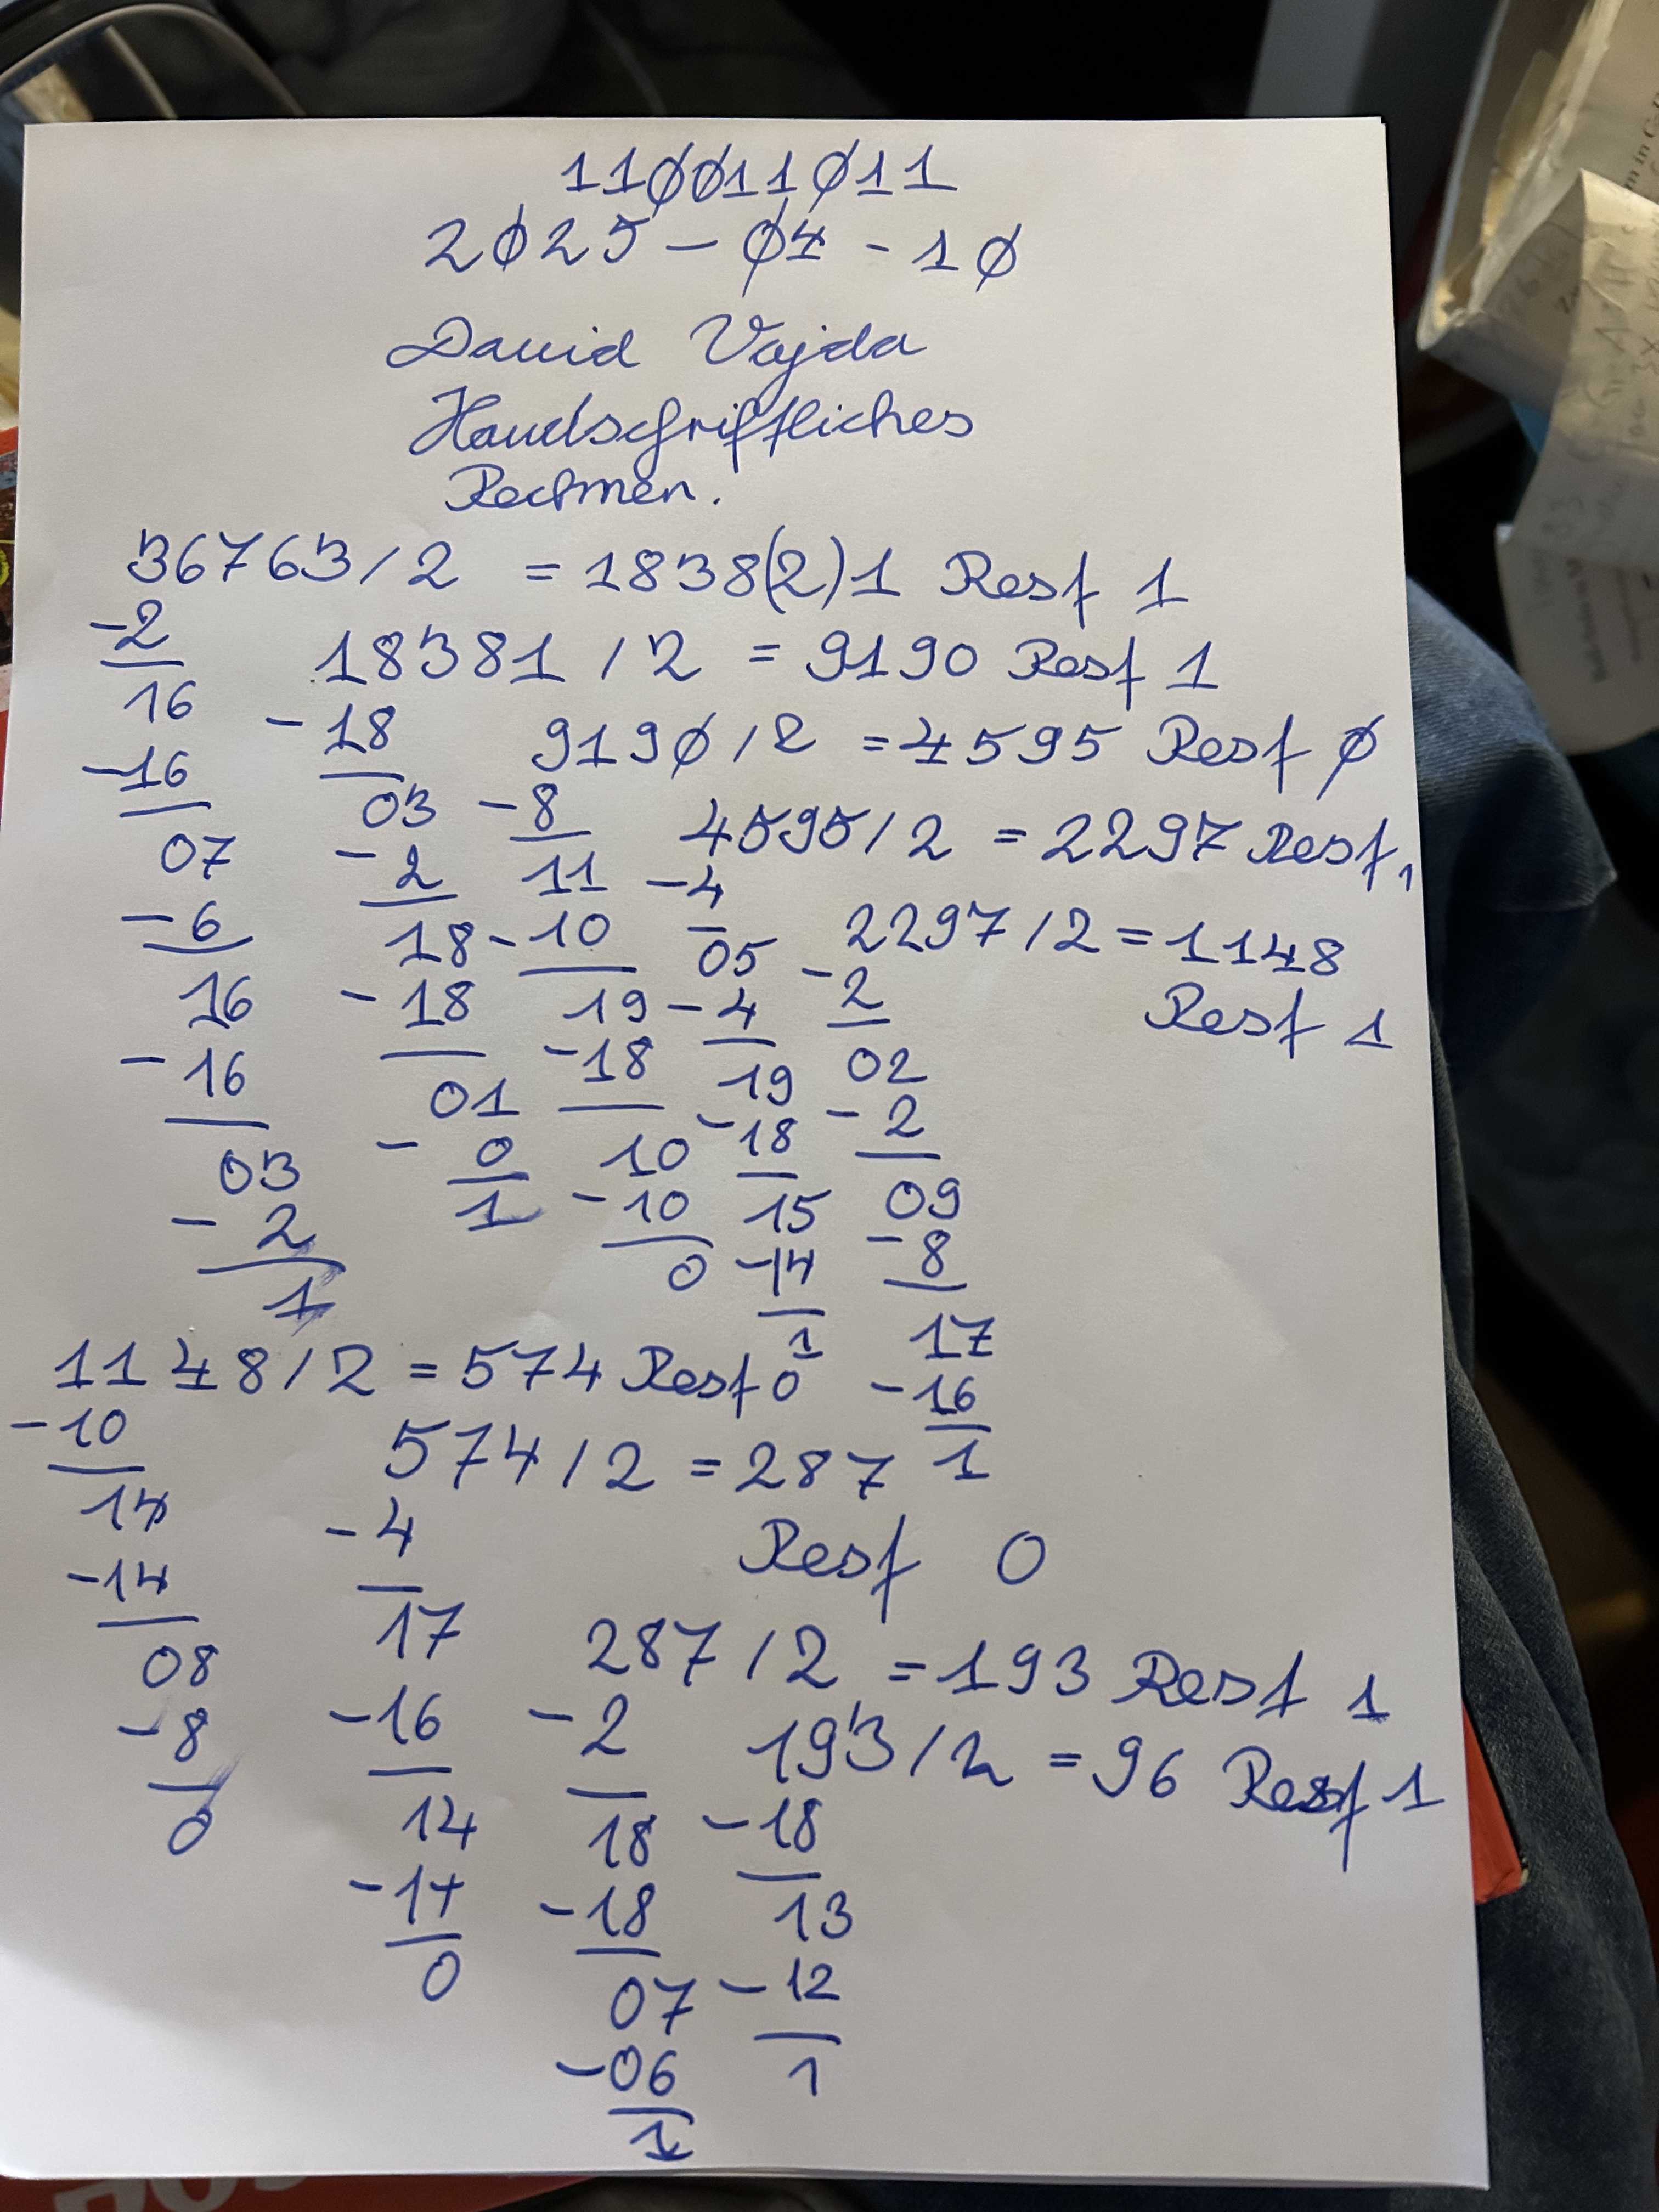 110011011
2025 - 04 - 10
David Vajda
Handschriftliches
Rechnen.
36763 / 2 = 1838(2)1 Rest 1
-2
18381 / 2 = 9190 Rest 1
16
-18
9190 / 2 = 4595 Rest 0
-16
03 -8
4595 / 2 = 2297 Rest 1
07
-2 11 -4
-6
18 -10 05
2297 / 2 = 1148
Rest 1
16 -18 19 -4 -2
-16
01 -18 19 02
03 -0 10 -18 -2
-2 1 -10 15 09
1 0 -14 -8
1 17
1148 / 2 = 574 Rest 0 -16
-10
574 / 2 = 287 1
14 -4
Rest 0
-14
08 17
287 / 2 = 193 Rest 1
-8 -16 -2
193 / 2 = 96 Rest 1
0 14 18 -18
-14 -18 13
0 07 -12
-06 1
1